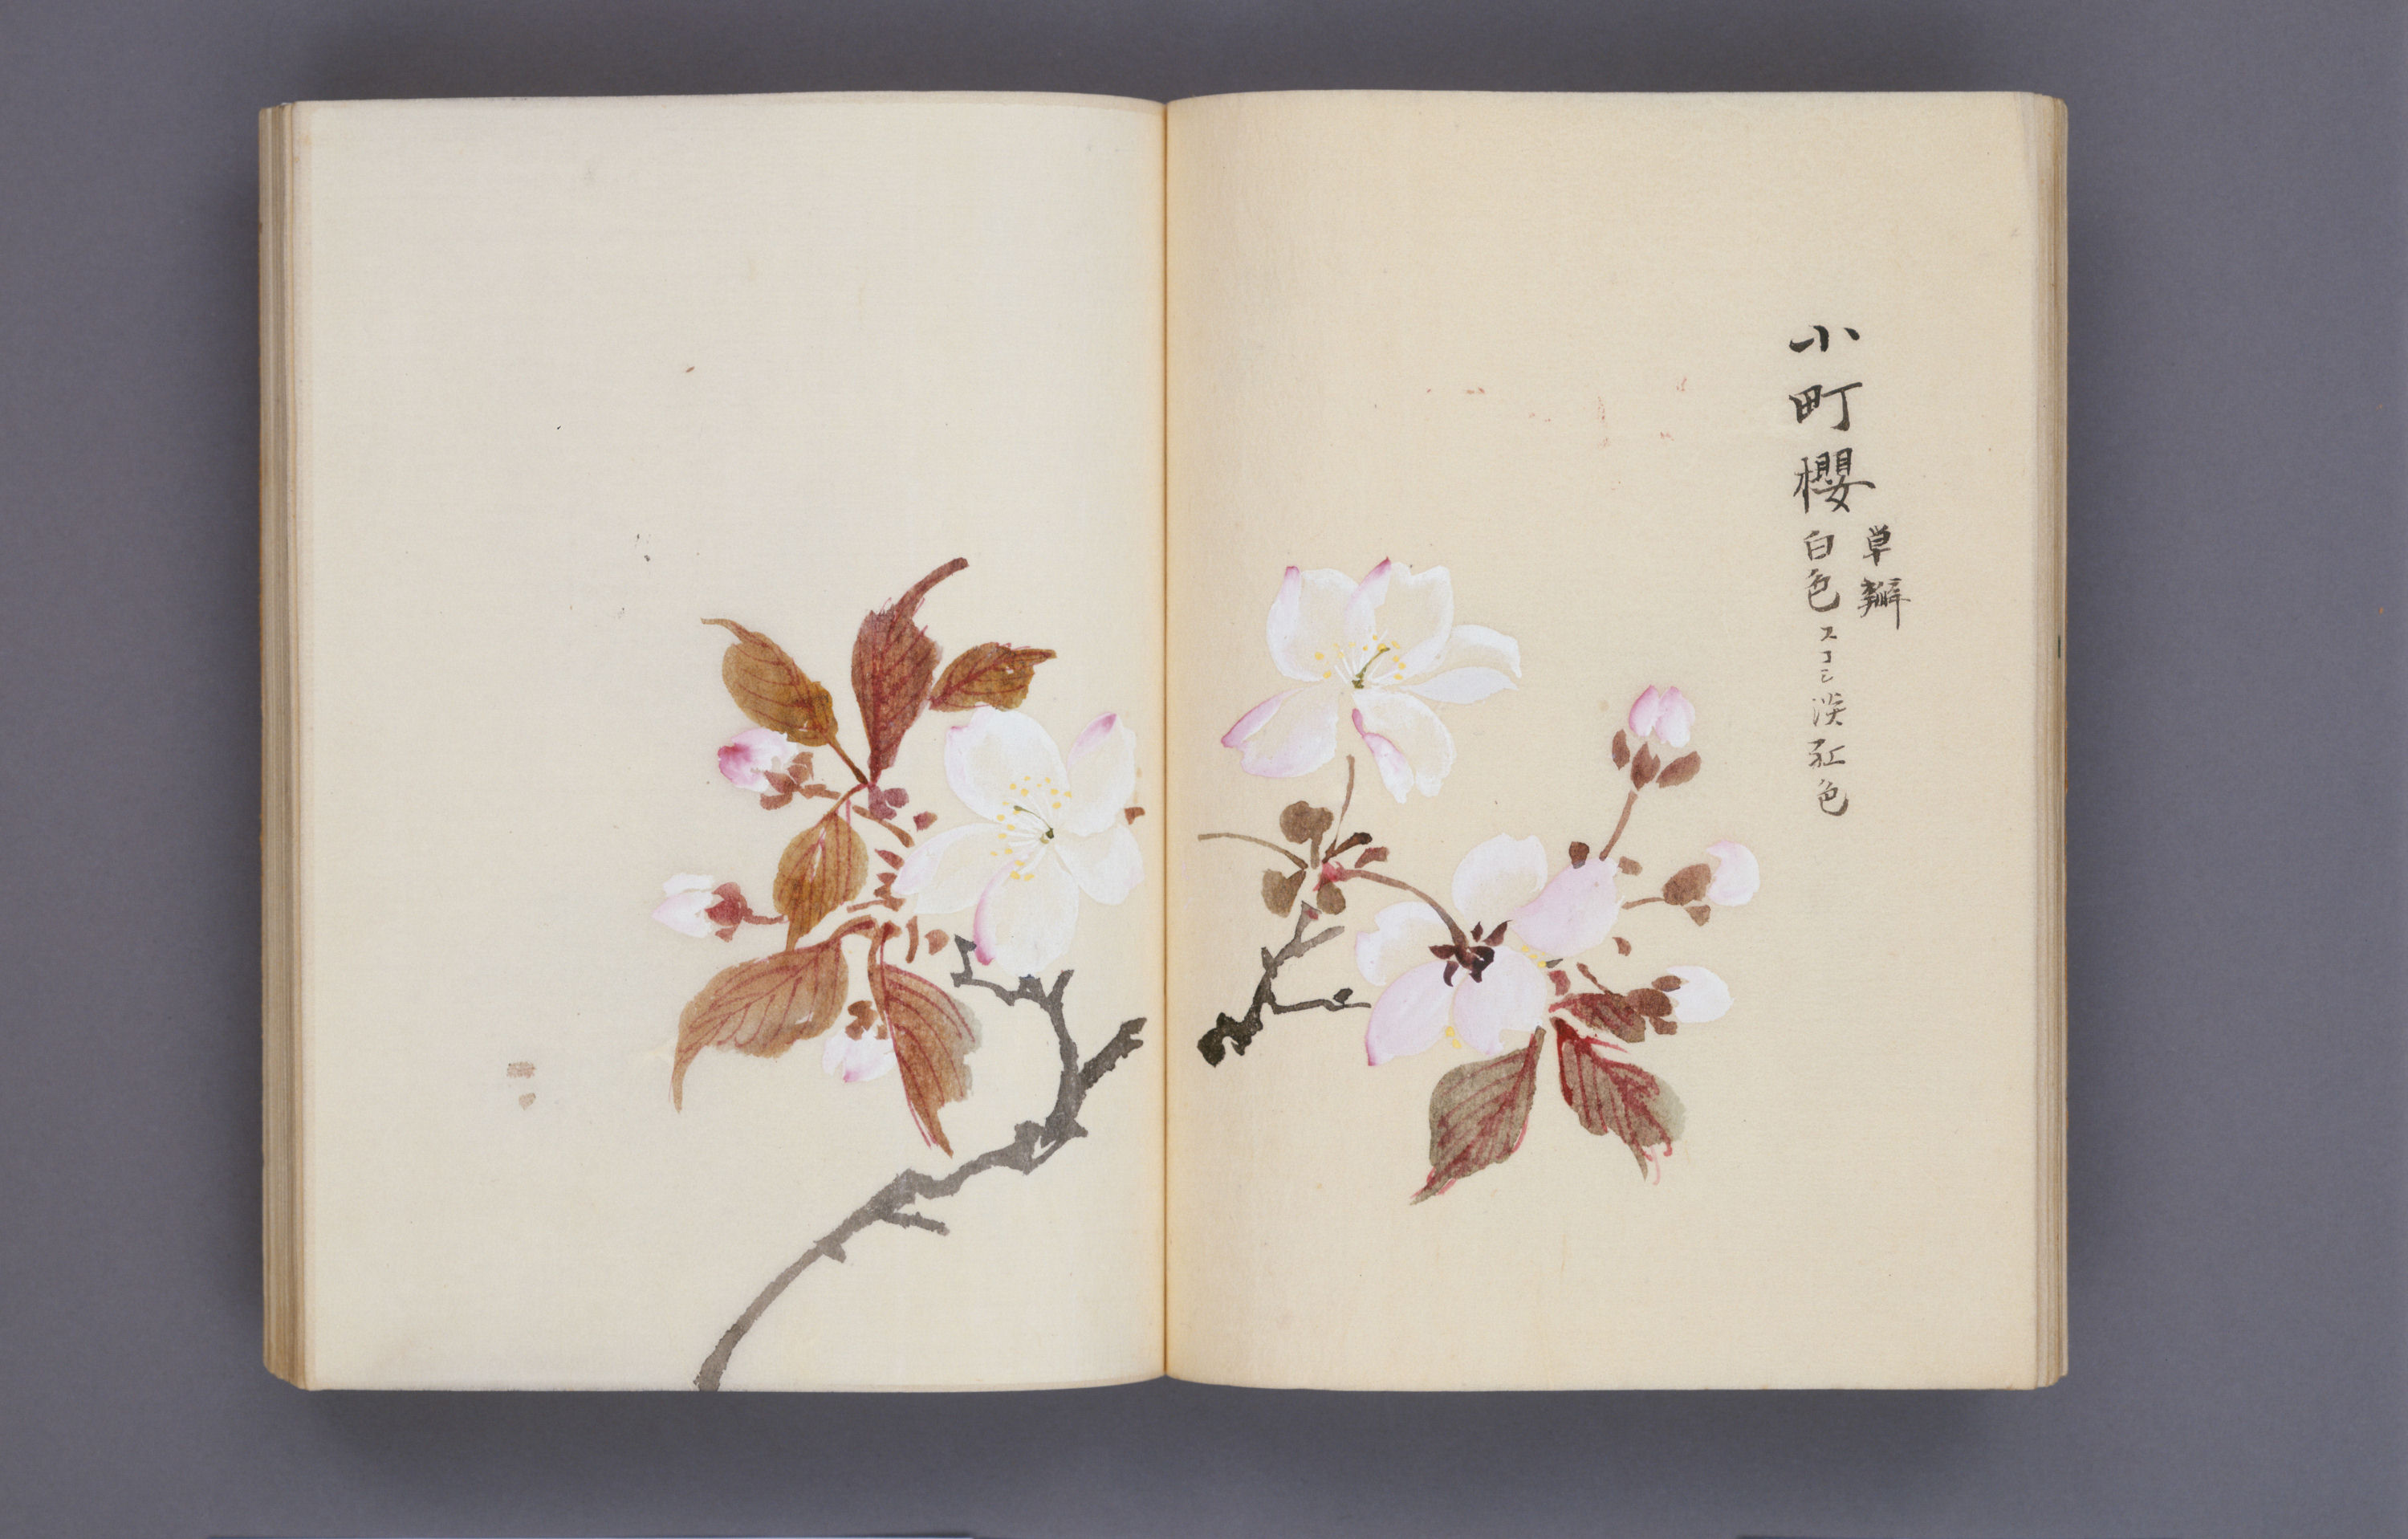 小町櫻
単瓣
白色スコシ淡紅色